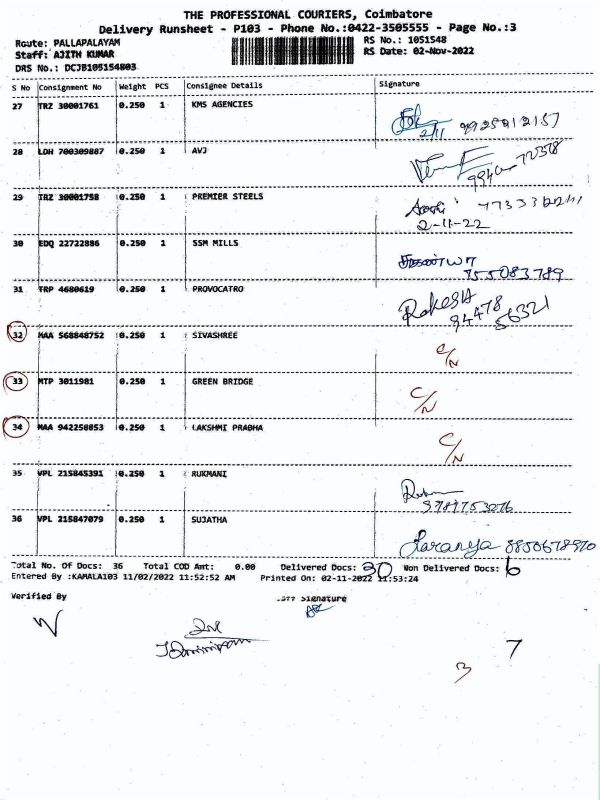 THE PROFESSIONAL COURIERS, Coimbatore
Delivery Runsheet - P103 - Phone No.:0422-3505555 - Page No.:3
Route: PALLAPALAYAM
RS No.: 1051548
Staff: AJITH KUMAR
RS Date: 02-Nov-2022
DRS No.: DCJB105154803
S No Consignment No Weight PCS Consignee Details Signature
27 TRZ 30001761 0.250 1 KMS AGENCIES
2/11
28 LDH 700309887 0.250 1 AVJ
29 TRZ 30001758 0.250 1 PREMIER STEELS
2-11-22
30 EDQ 22722886 0.250 1 SSM MILLS
755083789
31 TRP 4680619 0.250 1 PROVOCATRO
Rakesh
94478
56321
32 MAA 568848752 0.250 1 SIVASHREE
C/N
33 MTP 3011981 0.250 1 GREEN BRIDGE
C/N
34 MAA 942258853 0.250 1 LAKSHMI PRABHA
C/N
35 VPL 215845391 0.250 1 RUKMANI
36 VPL 215847079 0.250 1 SUJATHA
Saranya 8850678970
Total No. Of Docs: 36 Total COD Amt: 0.00 Delivered Docs: 30 Non Delivered Docs: 6
Entered By :KAMALA103 11/02/2022 11:52:52 AM Printed On: 02-11-2022 11:53:24
Verified By
Signature
7
3